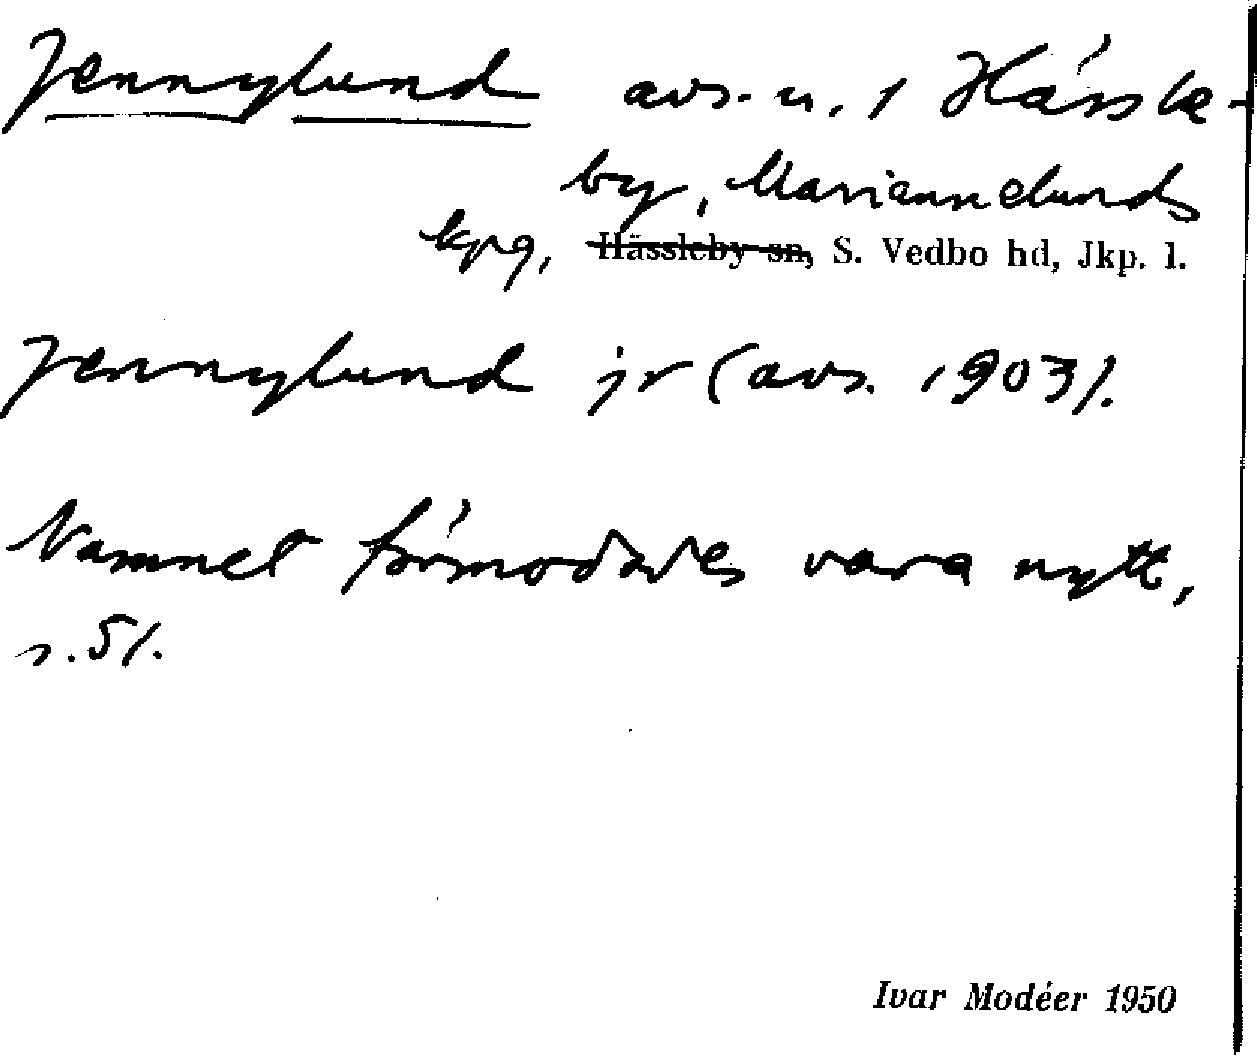 Jennylund avs. u. 1 Hässle-
by, Mariannelunds
kpg, Hässleby sn, S. Vedbo hd, Jkp. l.
Jennylund jr (avs. 1903).
Namnet förmodades vara nytt,
s. 51.
Ivar Modéer 1950